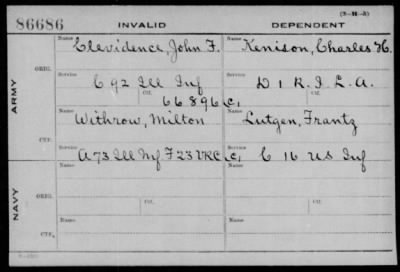 (3-H-5)
86686 INVALID DEPENDENT
Name Clevidence, John F. Name Kenison, Charles H.
ORIG.
Service C 92 Ill Inf Service D 1 R.I.L.A.
ARMY
Ctf. 66896 C, Ctf.
Name Withrow, Milton Name Lutgen, Frantz
CTF.
Service A 73 Ill Inf F 23 VRC C, Service C 16 US Inf
Name Name
ORIG.
NAVY
Service Ctf. Service Ctf.
Name Name
CTF.
Service Service